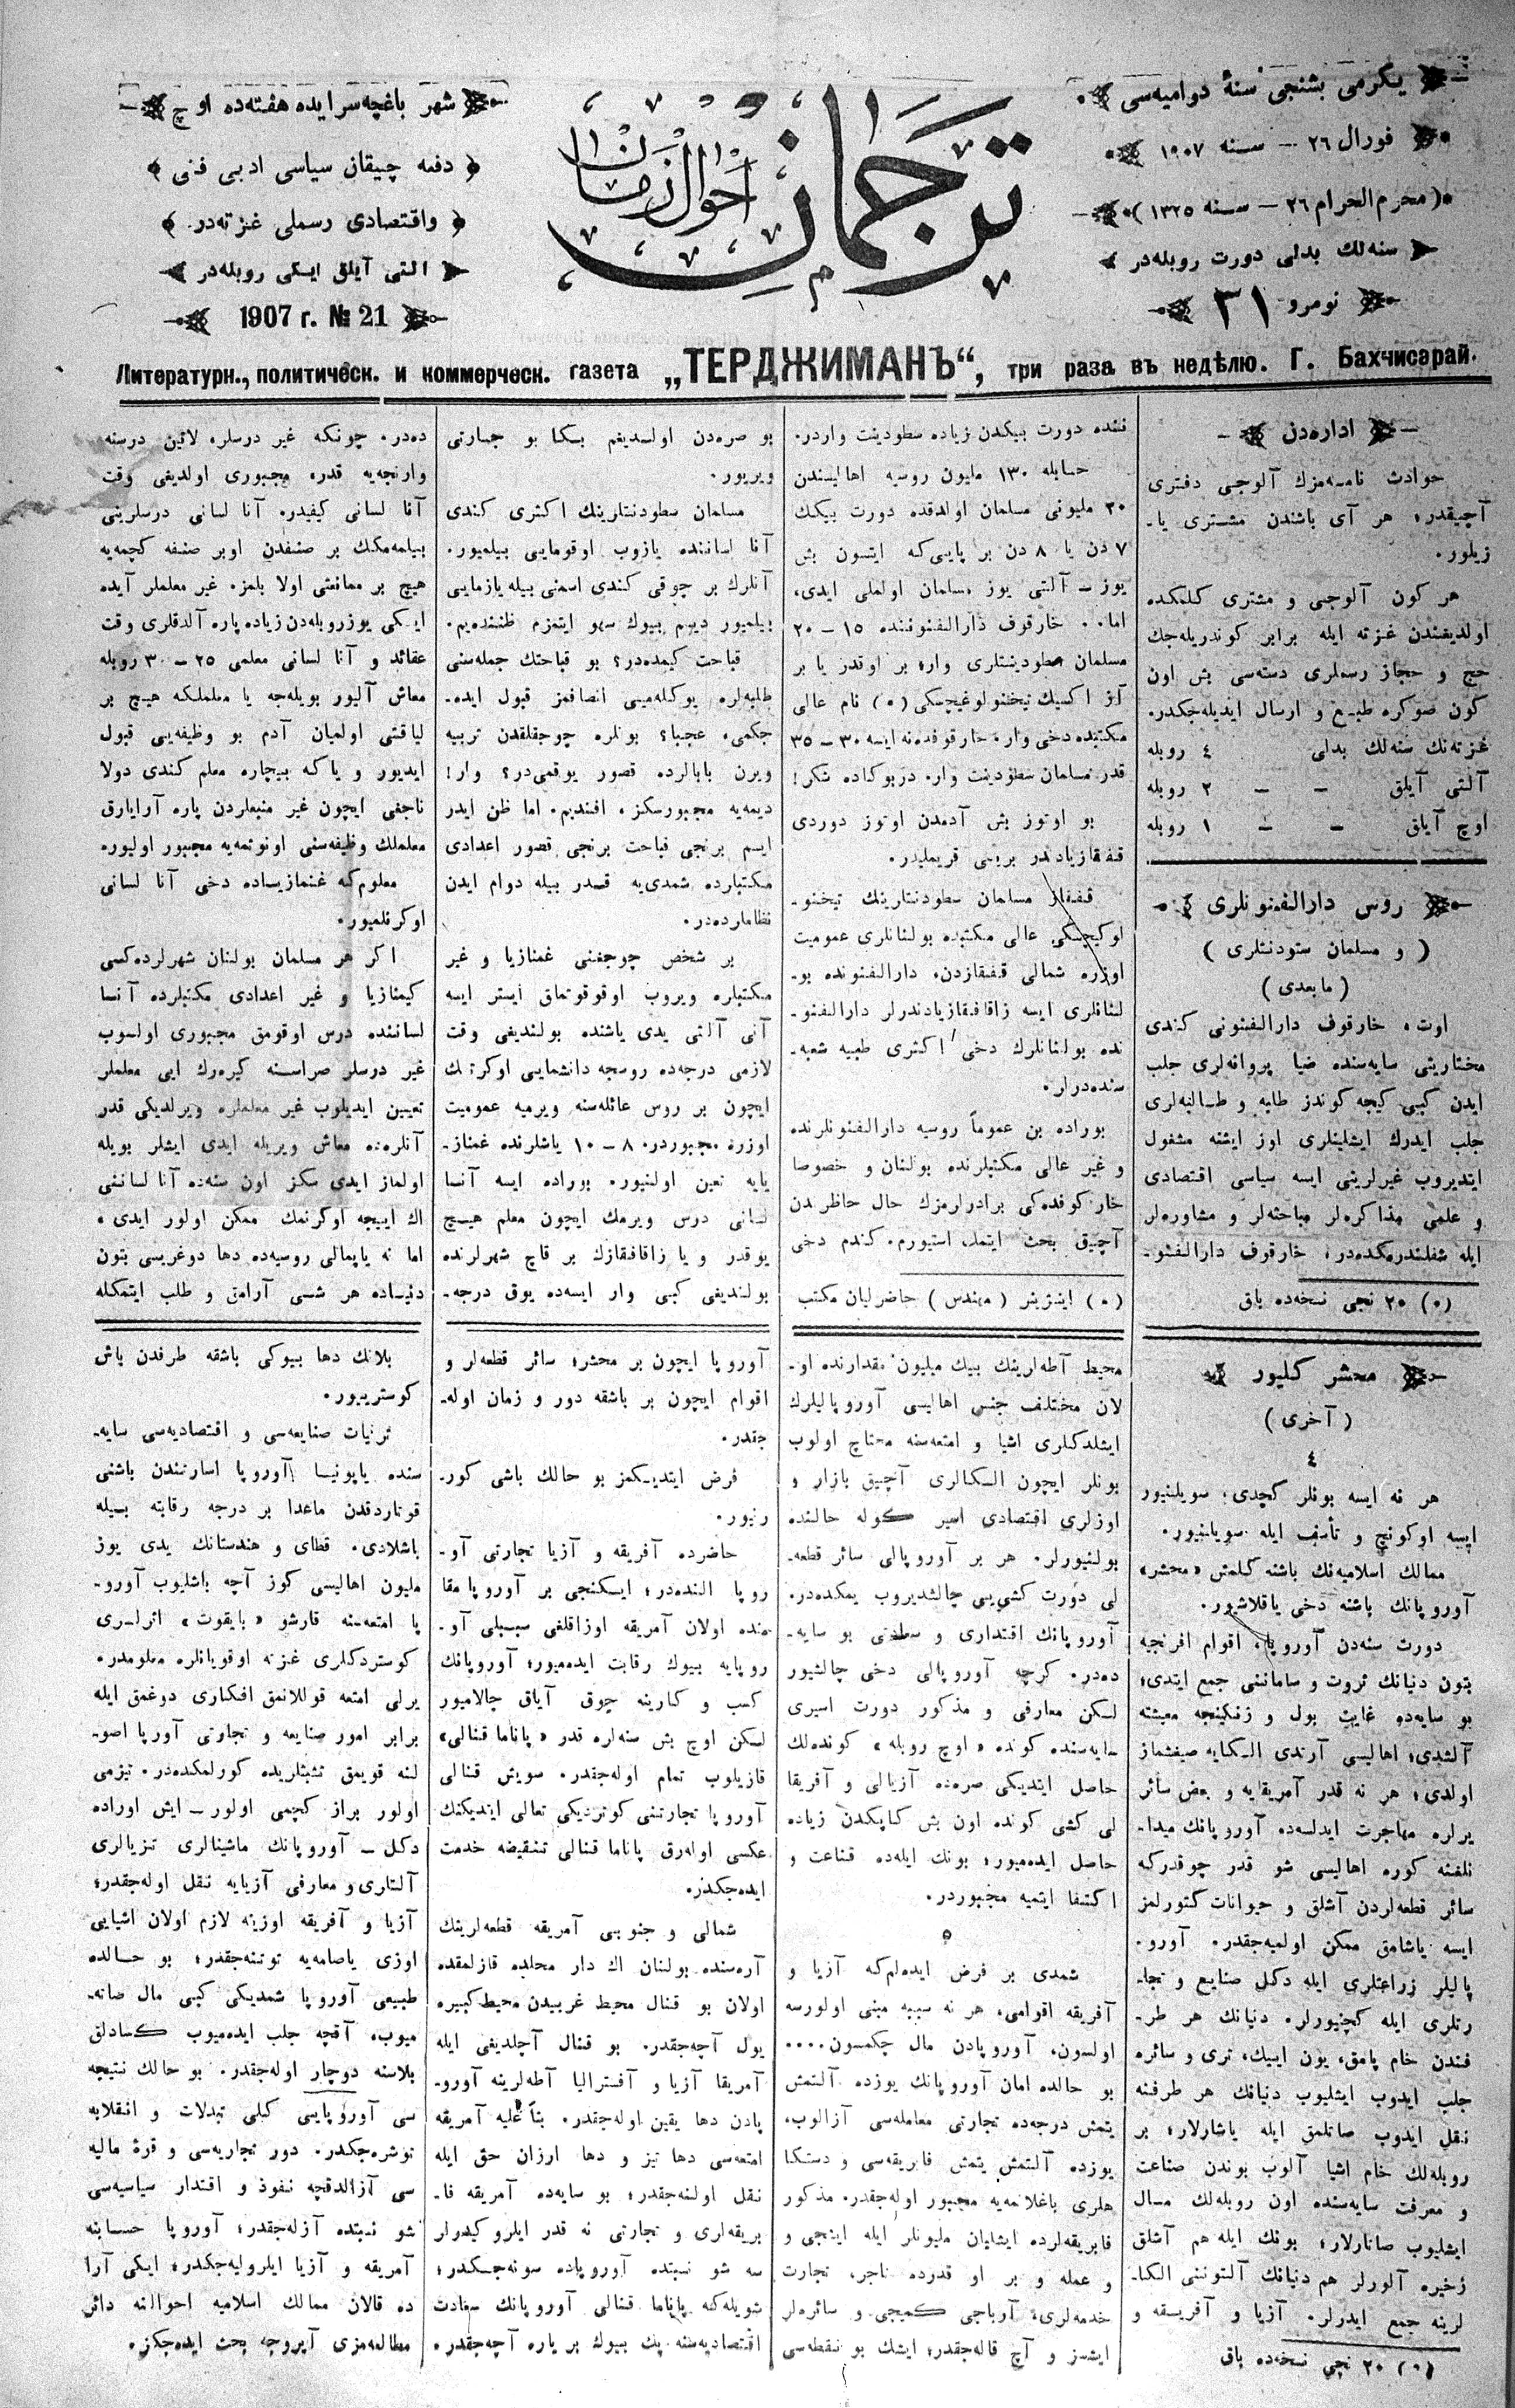 یگرمی بشنجی سنۀ دوامیه‌سی
فورال ٢٦ — سنه ١٩٠٧
(محرم الحرام ٢٦ — سنه ١٣٢٥)
سنه‌لك بدلی دورت روبله‌در
نومرو ٢١
ترجمان
احوال زمان
شهر باغچه‌سرایده هفته‌ده اوچ
دفعه چیقان سیاسی ادبی فنی
واقتصادی رسملی غزته‌در.
التی آیلق ایكی روبله‌در
1907 г. № 21
Литературн., политическ. и коммерческ. газета „ТЕРДЖИМАНЪ“, три раза въ недѣлю. Г. Бахчисарай.
اداره‌دن
حوادث نامه‌مزك آلوجی دفتری
آچیقدر؛ هر آی باشندن مشتری یا-
زیلور.
هر كون آلوجی و مشتری كلمكده
اولدیغندن غزته ایله برابر كوندریله‌جك
حج و حجاز رسملری دسته‌سی بش اون
كون صوكره طبع و ارسال ایدیله‌جكدر.
غزته‌نك سنه‌لك بدلی ٤ روبله
آلتی آیلق — — ٢ روبله
اوچ آیلق — — ١ روبله
روس دارالفنونلری
( و مسلمان ستودنتلری )
( مابعدی )
اوت، خارقوف دارالفنونی كندی
مختاریتی سایه‌سنده ضیا پروانه‌لری جلب
ایدن كبی كیجه كوندز طلبه و طالبه‌لری
جلب ایدرك ایشلینلری اوز ایشنه مشغول
ایتدیروب غیرلرینی ایسه سیاسی اقتصادی
و علمی مذاكره‌لر مباحثه‌لر و مشاوره‌لر
ایله شغلندرمكده‌در؛ خارقوف دارالفنو-
(٥) ٢٠ نجی نسخه‌ده باق
ننده دورت بیكدن زیاده سطودینت واردر.
حسابله ١٣٠ ملیون روسیه اهالیسندن
٢٠ ملیونی مسلمان اولدقده دورت بیكك
٧ دن یا ٨ دن بر پایی‌كه ایتسون بش
یوز — آلتی یوز مسلمان اولملی ایدی،
اما.. خارقوف دارالفنوننده ١٥ — ٢٠
مسلمان سطودینتلری وار؛ بر اوقدر یا بر
آز اكسیك تیخنولوغیچسكی (٥) نام عالی
مكتبده دخی وار، خارقوفده‌نه ایسه ٣٠ — ٣٥
قدر مسلمان سطودینت وار. دربوكاده شكر!
بو اوتوز بش آدمدن اوتوز دوردی
قفقازیادندر بریسی قریملیدر.
قفقاز مسلمان سطودنتلرینك تیخنو-
لوكیچسكی عالی مكتبده بولنانلری عمومیت
اوزره شمالی قفقازدن، دارالفنونده بو-
لنانلری ایسه زاقافقازیادندرلر دارالفنو-
نده بولنانلرك دخی اكثری طبیه شعبه-
سنده‌درلر.
بوراده بن عموماً روسیه دارالفنونلرنده
و غیر عالی مكتبلرنده بولنان و خصوصا
خاركوفده‌كی برادرلرمزك حال حاظرندن
آچیق بحث ایتمك استیورم. كندم دخی
(٥) اینژینر (مهندس) حاضرلیان مكتب
بو صره‌دن اولدیغم بكا بو جسارتی
ویریور.
مسلمان سطودنتلرینك اكثری كندی
آنا لساننده یازوب اوقومایی بیلمیور.
آنلرك بر چوقی كندی اسمنی بیله یازمایی
بیلمیور دیسم بیوك سهو ایتمزم ظننده‌یم.
قباحت كیمده‌در؟ بو قباحتك جمله‌سنی
طلبه‌لره یوكله‌میی انصافمز قبول ایده-
جكمی، عجبا؟ بونلره چوجقلقدن تربیه
ویرن بابالرده قصور یوقمی‌در؟ وار!
دیمه‌یه مجبورسكز، افندیم. اما ظن ایدر
ایسم برنجی قباحت برنجی قصور اعدادی
مكتبلرده شمدی‌یه قدر بیله دوام ایدن
نظاملرده‌در.
بر شخص چوجغنی غمنازیا و غیر
مكتبلره ویروب اوقوتماق ایستر ایسه
آنی آلتی یدی یاشنده بولندیغی وقت
لازمی درجه‌ده روسجه دانشمایی اوكرنمك
ایچون بر روس عائله‌سنه ویرمیه عمومیت
اوزره مجبوردر. ٨ — ١٠ یاشلرنده غمناز-
یایه تعین اولنیور. بوراده ایسه آنا
لسانی درس ویرمك ایچون معلم هیچ
یوقدر و یا زاقافقازك بر قاچ شهرلرنده
بولندیغی كبی وار ایسه‌ده یوق درجه-
ده‌در. چونكه غیر درسلره لاتین درسنه
وارنجه‌یه قدر، مجبوری اولدیغی وقت
آنا لسانی كیفیدر. آنا لسانی درسلرینی
بیلمه‌مكك بر صنفدن اوبر صنفه كچمه‌یه
هیچ بر ممانعتی اولا بلمز. غیر معلملر آیده
ایكی یوزروبله‌دن زیاده پاره آلدقلری وقت
عقائد و آنا لسانی معلمی ٢٥ — ٣٠ روبله
معاش آلیور بویله‌جه یا معلملكه هیچ بر
لیاقتی اولمیان آدم بو وظیفه‌یی قبول
ایدیور و یاكه بیچاره معلم كندی دولا
ناجغی ایچون غیر منبعلردن پاره آرایارق
معلملك وظیفه‌سنی اونوتمه‌یه مجبور اولیور.
معلوم‌كه غمنازیاده دخی آنا لسانی
اوكرنلمیور.
اكر هر مسلمان بولنان شهرلرده‌كی
كیمنازیا و غیر اعدادی مكتبلرده آنا
لساننده درس اوقومق مجبوری اولوب
غیر درسلر صراسنه كیره‌رك ایی معلملر
تعیین ایدیلوب غیر معلملره ویرلدیكی قدر
آنلره‌ده معاش ویریله ایدی ایشلر بویله
اولماز ایدی سكز اون سنه‌ده آنا لساننی
اك اییجه اوكرنمك ممكن اولور ایدی.
اما نه یاپمالی روسیه‌ده دها دوغریسی بتون
دنیاده هر شی آرامق و طلب ایتمكله
محشر كلیور
( آخری )
٤
هر نه ایسه بونلر كچدی؛ سویلنیور
ایسه اوكونچ و تأسف ایله سویلنیور.
ممالك اسلامیه‌نك باشنه كلمش «محشر»
آوروپانك باشنه دخی یاقلاشیور.
دورت سنه‌دن آوروپا، اقوام افرنجیه
بتون دنیانك ثروت و سامانی جمع ایتدی؛
بو سایه‌ده غایت بول و زنكینجه معیشته
آلشدی؛ اهالیسی آرتدی الكایه صیغشماز
اولدی؛ هر نه قدر آمریقایه و بعض سائر
یرلره مهاجرت ایدلسه‌ده آوروپانك میدا-
نلغنه كوره اهالیسی شو قدر چوقدركه
سائر قطعه‌لردن آشلق و حیوانات كتورلمز
ایسه یاشامق ممكن اولمیه‌جقدر. آورو-
پالیلر زراعتلری ایله دكل صنایع و تجا-
رتلری ایله كچنیورلر. دنیانك هر طر-
فندن خام پامق، یون ایپیك، تری و سائره
جلب ایدوب ایشلیوب دنیانك هر طرفنه
نقل ایدوب صاتلمق ایله یاشارلار؛ بر
روبله‌لك خام اشیا آلوب بوندن صناعت
و معرفت سایه‌سنده اون روبله‌لك مال
ایشلیوب صاتارلار؛ بونك ایله هم آشلق
ذخیره آلورلر هم دنیانك آلتوننی الكا-
لرینه جمع ایدرلر. آزیا و آفریقه و
(٥) ٢٠ نجی نسخه‌ده باق
محیط آطه‌لرینك بیك میلیون مقدارنده او-
لان مختلف جنس اهالیسی آوروپالیلرك
ایشلدكلری اشیا و امتعه‌سنه محتاج اولوب
بونلر ایچون الكالری آچیق بازار و
اوزلری اقتصادی اسیر كوله حالنده
بولنیورلر. هر بر آوروپالی سائر قطعه-
لی دورت كشی‌یی چالشدیروب یمكده‌در.
آوروپانك اقتداری و سطوتی بو سایه-
ده‌در. كرچه آوروپالی دخی چالشیور
لكن معارفی و مذكور دورت اسیری
سایه‌سنده كونده «اوچ روبله» كونده‌لك
حاصل ایتدیكی صره‌ده آزیالی و آفریقا
لی كشی كونده اون بش كاپكدن زیاده
حاصل ایده‌میور؛ بونك ایله‌ده قناعت و
اكتفا ایتمیه مجبوردر.
٥
شمدی بر فرض ایده‌لم‌كه آزیا و
آفریقه اقوامی، هر نه سببه مبنی اولورسه
اولسون، آوروپادن مال چكمسون....
بو حالده امان آوروپانك یوزده آلتمش
یتمش درجه‌ده تجارتی معامله‌سی آزالوب،
یوزده آلتمش یتمش فابریقه‌سی و دستكا
هلری باغلانمه‌یه مجبور اوله‌جقدر. مذكور
فابریقه‌لرده ایشلیان ملیونلر ایله ایشجی و
و عمله و بر او قدرده تاجر، تجارت
خدمه‌لری، آرباجی كمیجی و سائره‌لر
ایشسز و آچ قاله‌جقدر؛ ایشتك بو نقطه‌سی
آوروپا ایچون بر محشر؛ سائر قطعه‌لر و
اقوام ایچون بر باشقه دور و زمان اوله-
جقدر.
فرض ایتدیكمز بو حالك باشی كور-
نیور.
حاضرده آفریقه و آزیا تجارتی آو-
روپا النده‌در؛ ایكنجی بر آوروپا مقا
منده اولان آمریقه اوزاقلغی سببلی آو-
روپایه بیوك رقابت ایده‌میور؛ آوروپانك
كسب و كارینه چوق آیاق چالامیور
لكن اوچ بش سنه‌لره قدر «پاناما قنالی»
قازیلوب تمام اوله‌جقدر. سویش قنالی
آوروپا تجارتنی كوتردیكی تعالی ایتدیكنك
عكسی اوله‌رق پاناما قنالی تنقیضه خدمت
ایده‌جكدر.
شمالی و جنوبی آمریقه قطعه‌لرینك
آره‌سنده بولنان اك دار محلده قازلمقده
اولان بو قنال محیط غربیدن محیط كبیره
یول آچه‌جقدر. بو قنال آچلدیغی ایله
آمریقا آزیا و آفسترالیا آطه‌لرینه آورو-
پادن دها یقین اوله‌جقدر. بناً علیه آمریقه
امتعه‌سی دها تیز و دها ارزان حق ایله
نقل اولنه‌جقدر؛ بو سایه‌ده آمریقه فا-
بریقه‌لری و تجارتی نه قدر ایلرو كیدرلر
سه شو نسبتده آوروپاده سونه‌جكدر؛
شویله‌كه پاناما قنالی آوروپانك سعادت
اقتصادیه‌سنه پك بیوك بر یاره آچه‌جقدر.
بلانك دها بیوكی باشقه طرفدن باش
كوستریبور.
ترقیات صنایعه‌سی و اقتصادیه‌سی سایه-
سنده یاپونیا آوروپا اسارتندن باشنی
قوتاردقدن ماعدا بر درجه رقابته بیله
باشلادی. قطای و هندستانك یدی یوز
ملیون اهالیسی كوز آچه باشلیوب آورو-
پا امتعه‌سنه قارشو «بایقوت» اثرلری
كوستردكلری غزته اوقویانلره معلومدر.
یرلی امتعه قوللانمق افكاری دوغمق ایله
برابر امور صنایعه و تجارتی آورپا اصو-
لنه قویمق تشبثلریده كورلمكده‌در. تیزمی
اولور براز كچمی اولور — ایش اوراده
دكل — آوروپانك ماشینالری تزیالری
آلتلری و معارفی آزیایه نقل اوله‌جقدر؛
آزیا و آفریقه اوزینه لازم اولان اشیایی
اوزی یاصامه‌یه توتنه‌جقدر؛ بو حالده
طبیعی آوروپا شمدیكی كبی مال صاته-
میوب، آقچه جلب ایده‌میوب كسادلق
بلاسنه دوچار اوله‌جقدر. بو حالك نتیجه
سی آوروپایی كلی تبدلات و انقلابه
توشره‌جكدر. دور تجاریه‌سی و قرۀ مالیه
سی آزالدقچه نفوذ و اقتدار سیاسیه‌سی
شو نسبتده آزله‌جقدر؛ آوروپا حسابنه
آمریقه و آزیا ایلرولیه‌جكدر؛ ایكی آرا
ده قالان ممالك اسلامیه احوالنه دائر
مطالعه‌مزی آیروجه بحث ایده‌جكز.